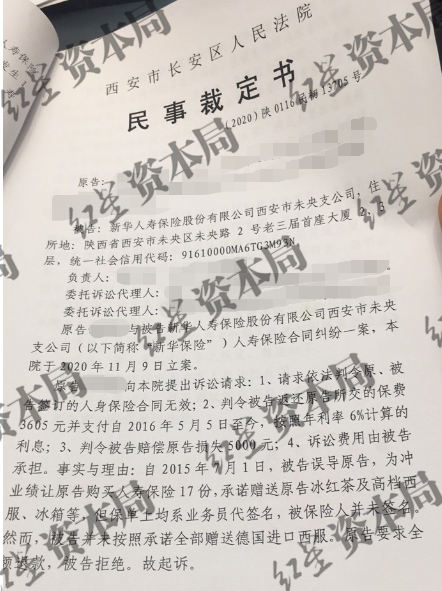 人寿保险
西安市长安区人民法院
民事裁定书
(2020)陕0116民初13705号
原告:
被告:新华人寿保险股份有限公司西安市未央支公司,住
所地:陕西省西安市未央区未央路2号老三届首座大厦2、3
层,统一社会信用代码:91610000MA6TG3M93N
负责人:
委托诉讼代理人:
委托诉讼代理人:
原告 与被告新华人寿保险股份有限公司西安市未央
支公司(以下简称“新华保险”)人寿保险合同纠纷一案,本
院于2020年11月9日立案。
原告 向本院提出诉讼请求:1、请求依法判令原、被
告签订的人身保险合同无效;2、判令被告返还原告所交的保费
3605元并支付自2016年5月5日至今,按照年利率6%计算的
利息;3、判令被告赔偿原告损失5000元;4、诉讼费用由被告
承担。事实与理由:自2015年 月1日,被告误导原告,为冲
业绩让原告购买人寿保险17份,承诺赠送原告冰红茶及高档西
服、冰箱等,但保单上均系业务员代签名,被保险人并未签名。
然而,被告并未按照承诺全部赠送德国进口西服。原告要求全
额退款,被告拒绝。故起诉。
红星资本局
红星资本局
红星资本局
红星资本局
红星资本局